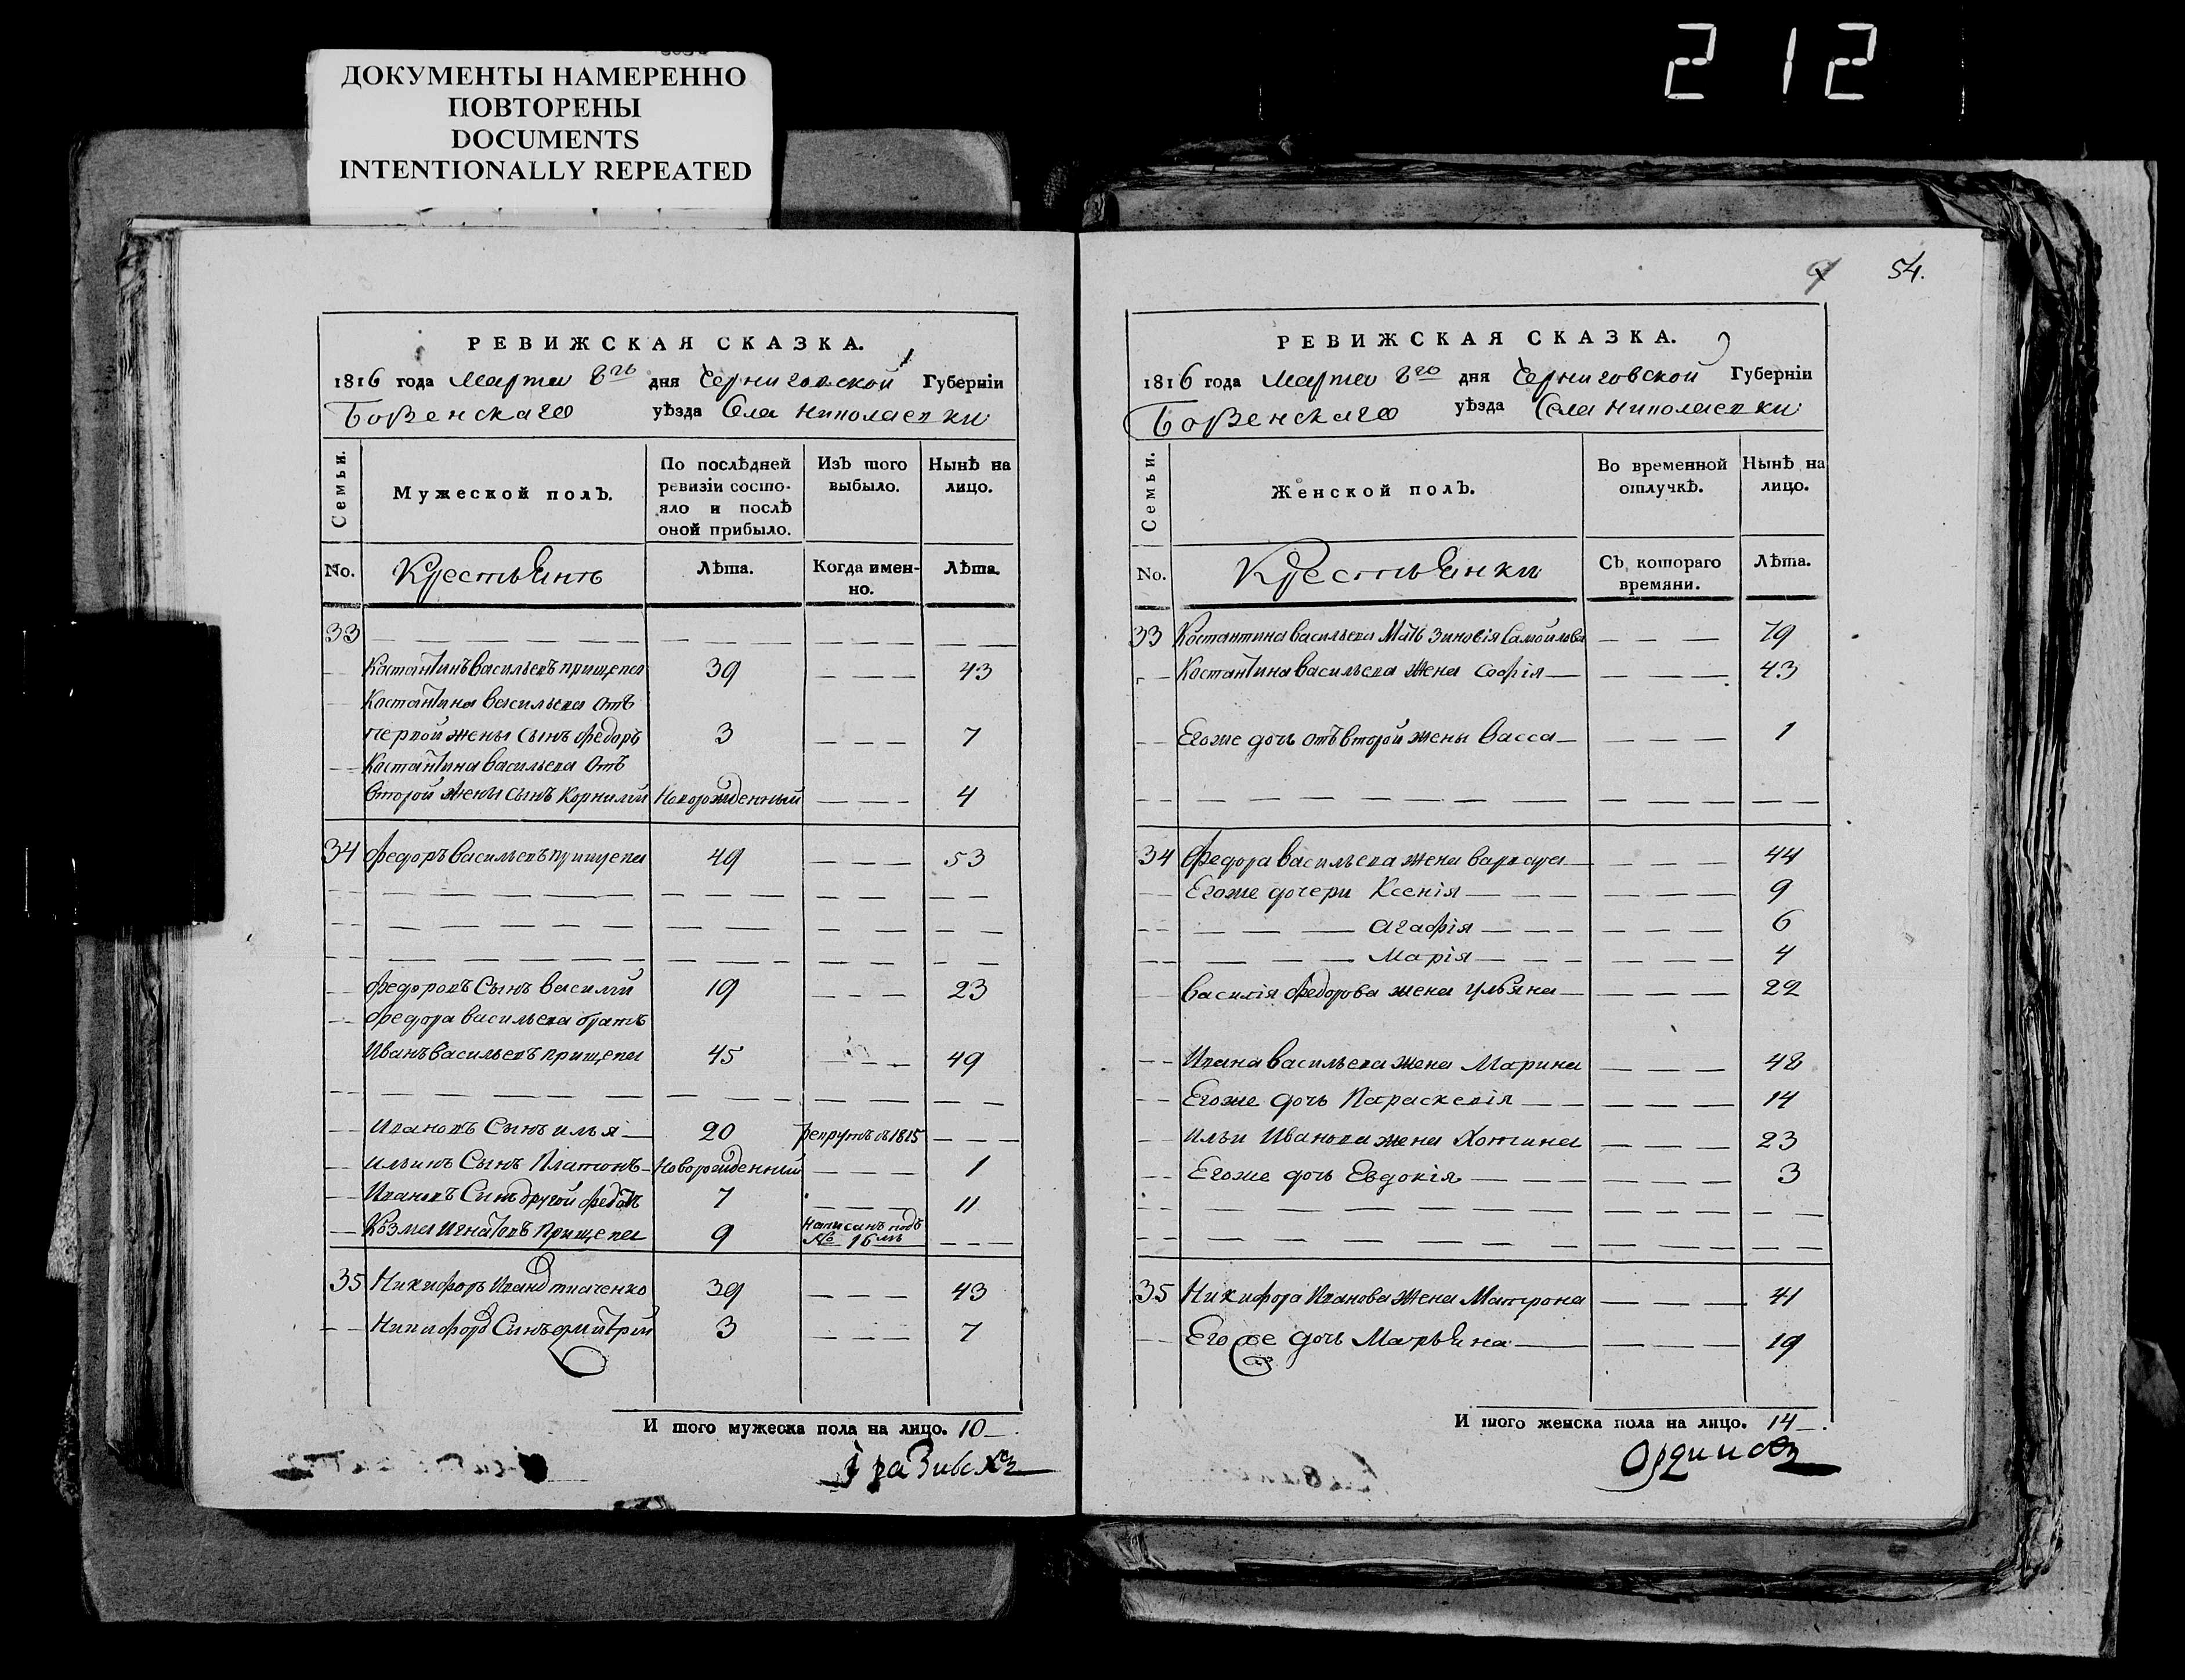 212
ДОКУМЕНТЫ НАМЕРЕННО
ПОВТОРЕНЫ
DOCUMENTS
INTENTIONALLY REPEATED
РЕВИЖСКАЯ СКАЗКА.
1816 года Марта 8го дня Черниговской Губерніи
Борзенскаго уѣзда Села Николаевки
Семьи.
Мужеской полъ.
По послѣдней ревизіи состо-яло и послѣ оной прибыло.
Изъ того выбыло.
Нынѣ на лицо.
No. Крестьянъ Лѣта. Когда имен-но. Лѣта.
33
Костантинъ васильевъ прищепа 39 43
Костантина васильева отъ
первой жены сынъ федоръ 3 7
Костантина васильева отъ
второй жены сынъ Корнилий Новорожденный 4
34 федоръ васильевъ прищепа 49 53
федоровъ Сынъ василий 19 23
федора васильева братъ
Иванъ васильевъ прищепа 45 49
Ивановъ Сынъ илья 20 рекрутъ въ 1815
ильинъ Сынъ Платонъ Новорожденный 1
Ивановъ Сынъ другой федотъ 7 11
Козма Игнатовъ Прищепа 9 написанъ подъ № 16мъ
35 Никифоръ Иванов ткаченко 39 43
Никифоров Сынъ дмитрий 3 7
И того мужеска пола на лицо. 10
54.
РЕВИЖСКАЯ СКАЗКА.
1816 года Марта 8го дня Черниговской Губерніи
Борзенскаго уѣзда Села Николаевки
Семьи.
Женской полъ.
Во временной отлучкѣ.
Нынѣ на лицо.
No. Крестьянки Съ котораго времяни. Лѣта.
33 Костантина васильева Мать Зиновія Самойлова 79
Костантина васильева жена Софія 43
Егоже дочь отъ второй жены Васса 1
34 Федора васильева жена варвара 44
Егоже дочери Ксенія 9
Агафія 6
Марія 4
василія Федорова жена Ульяна 22
Ивана васильева жена Марина 48
Егоже дочь Параскевія 14
Ильи Иванова жена Хотина 23
Егоже дочь Евдокія 3
35 Никифора Иванова Жена Матрона 41
Егоже дочь Марьяна 19
И того женска пола на лицо. 14